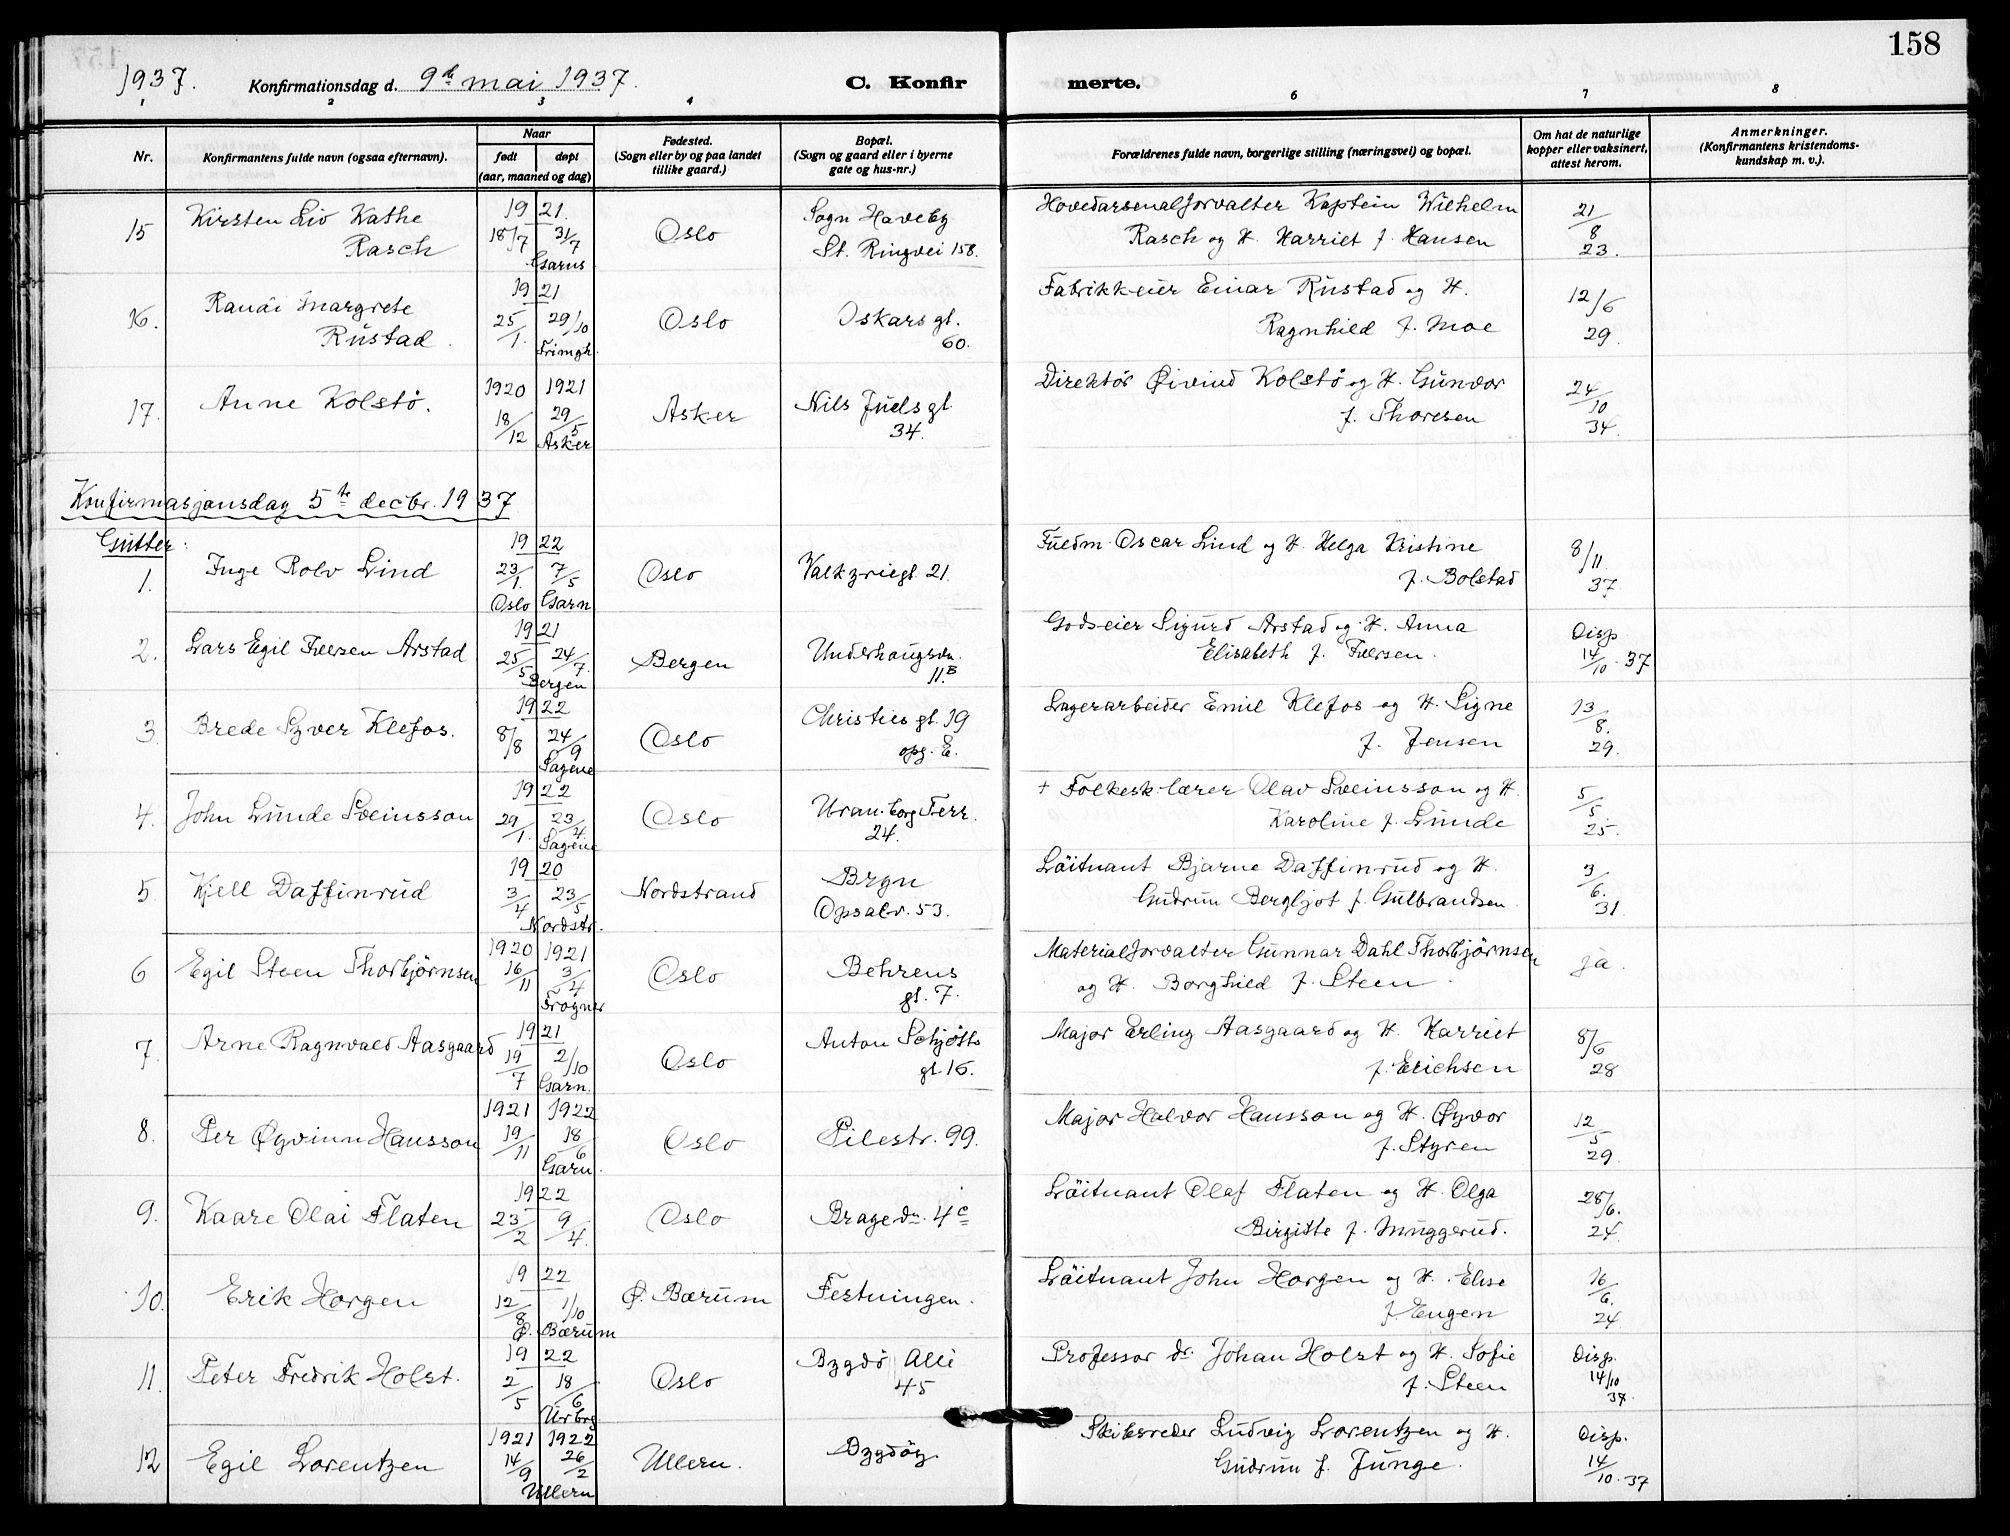 158
1937. Konfirmationsdag d. 9de mai 1937. C. Konfirmerte.
1 2 3 4 6 7 8
Nr. Konfirmantens fulde navn (ogsaa efternavn). Naar født døpt (aar, maaned og dag) Fødested. (Sogn eller by og paa landet tillike gaard.) Bopæl. (Sogn og gaard eller i byerne gate og hus-nr.) Forældrenes fulde navn, borgerlige stilling (næringsvei) og bopæl. Om hat de naturlige kopper eller vaksinert, attest herom. Anmerkninger. (Konfirmantens kristendomskundskap m. v.).
15 Kirsten Liv Kathe Rasch 1921. 18/7 31/7 Garns. Oslo Sogn Haveby St. Ringvei 158. Hovedarsenalforvalter Kaptein Wilhelm Rasch og H. Harriet f. Hansen 21/8 23.
16. Randi Margrete Rustad. 1921 25/1. 29/10 Trimgh. Oslo Oskars gt. 60. Fabrikkeier Einar Rustad og H. Ragnhild f. Moe 12/6 29.
17. Anne Kolstø. 1920 1921 18/12 29/5 Asker Asker Nils Juels gt 34. Direktør Øivind Kolstø og H. Gunvor f. Thoresen 24/10 34.
Konfirmasjonsdag 5te decbr. 1937
Gutter:
1. Inge Rolv Lind 1922 23/1. 7/5 Oslo Garn Oslo Valkyriegt. 21. Fuldm. Oscar Lind og H. Helga Kristine f. Bolstad 8/11. 37.
2. Lars Egil Feersen Arstad 1921 25/5 24/7. Bergen Bergen Underhaugsvn. 11.B Godseier Sigurd Arstad og H. Anna Elisabeth f. Feersen. Disp 14/10. 37
3. Brede Syver Klefos. 1922 8/8 24/9 Sagene Oslo Christies gt. 19 opg. E. Lagerarbeider Emil Klefos og H. Signe f. Jensen 13/8. 29.
4. John Lunde Sveinsson 1922 29/1. 23/4. Sagene Oslo Uranborg Terr. 24. + Folkesk.lærer Olav Sveinsson og H. Karoline f. Lunde 5/5. 25.
5. Kjell Daffinrud 1920 3/4 23/5 Nordstr. Nordstrand Bryn Opsalv. 53. Løitnant Bjarne Daffinrud og H. Gudrun Bergljot f. Gulbrandsen. 3/6. 31
6 Egil Steen Thorbjørnsen 1920 1921 16/11 3/4 Frogner Oslo Behrens gt. 7. Materialforvalter Gunnar Dahl Thorbjørnsen og H. Borghild f. Steen. ja.
7. Arne Ragnvald Aasgaard 1921 19/7 2/10 Garn. Oslo Anton Schjøtts gt. 16. Major Erling Aasgaard og H. Harriet f. Erichsen 8/6 28
8. Per Øyvinn Hansson 1921 1922 19/11 18/6 Garn. Oslo Pilestr. 99. Major Halvor Hansson og H. Øyvor f. Styren 12/5 29.
9. Kaare Olai Flaten 1922 23/2 9/4. Oslo Brage dn. 4c Løitnant Olaf Flaten og H. Olga Birgitte f. Muggerud. 28/6. 24.
10. Erik Horgen 1922 12/8 1/10 Ø. Bærum Ø. Bærum Festningen. Løitnant John Horgen og H. Elise f. Engen 16/6. 24.
11. Peter Fredrik Holst. 1922 2/5 18/6 Urbrg Oslo Bygdø Alle 45 Professor dr. Johan Holst og H. Sofie f. Steen Disp. 14/10 37.
12 Egil Lorentzen 1921 1922 14/9 26/2 Ullern Ullern. Bygdøy Skibsreder Ludvig Lorentzen og H. Gudrun f. Junge. Disp. 14/10. 37